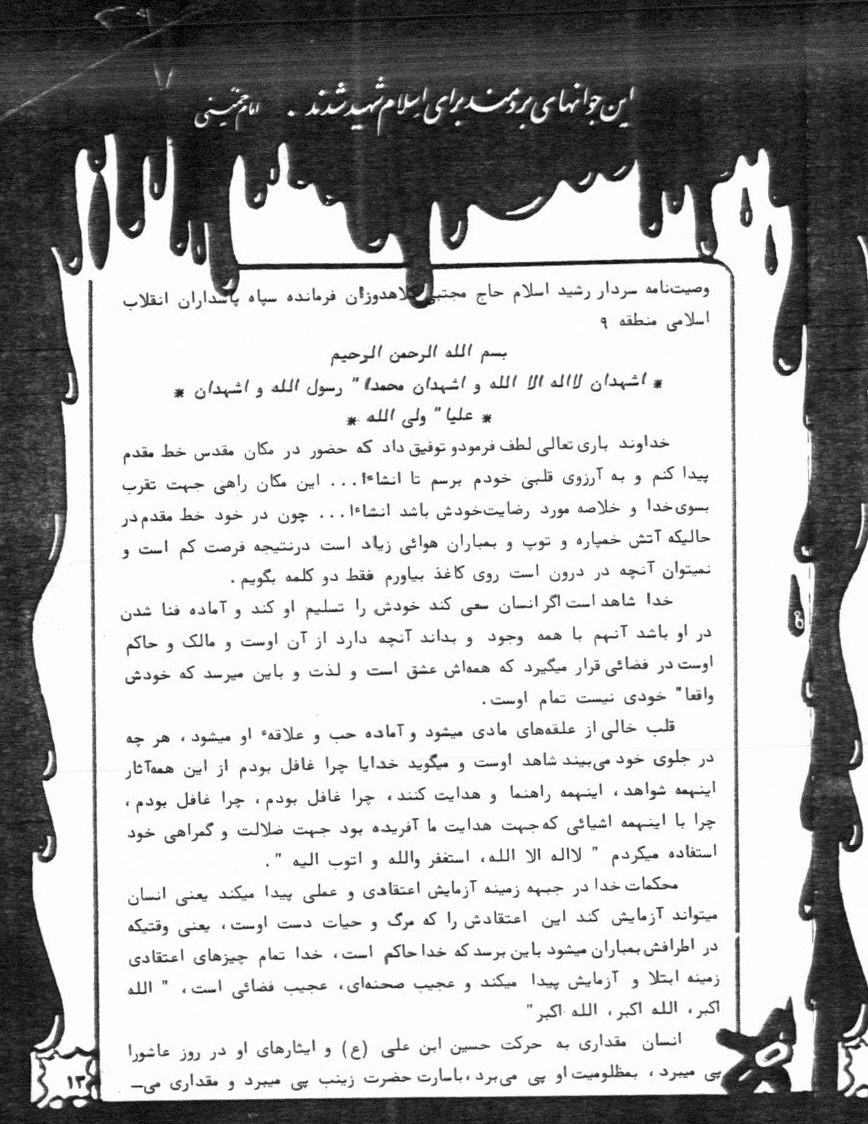 این جوانهای برومند برای اسلام شهید شدند . امام خمینی
وصیت‌نامه سردار رشید اسلام حاج مجتبی کلاهدوزان فرمانده سپاه پاسداران انقلاب
اسلامی منطقه ۹
بسم الله الرحمن الرحیم
* اشهدان لااله الا الله و اشهدان محمدا" رسول الله و اشهدان *
* علیا" ولی الله *
خداوند باری تعالی لطف فرمودو توفیق داد که حضور در مکان مقدس خط مقدم
پیدا کنم و به آرزوی قلبی خودم برسم تا انشاءا... این مکان راهی جهت تقرب
بسوی خدا و خلاصه مورد رضایت‌خودش باشد انشاءا... چون در خود خط مقدم‌در
حالیکه آتش خمپاره و توپ و بمباران هوائی زیاد است درنتیجه فرصت کم است و
نمیتوان آنچه در درون است روی کاغذ بیاورم فقط دو کلمه بگویم .
خدا شاهد است اگر انسان سعی کند خودش را تسلیم او کند و آماده فنا شدن
در او باشد آنهم با همه وجود و بداند آنچه دارد از آن اوست و مالک و حاکم
اوست در فضائی قرار میگیرد که همه‌اش عشق است و لذت و باین میرسد که خودش
واقعا" خودی نیست تمام اوست .
قلب خالی از علقه‌های مادی میشود و آماده حب و علاقهٔ او میشود ، هر چه
در جلوی خود می‌بیند شاهد اوست و میگوید خدایا چرا غافل بودم از این همه‌آثار
اینهمه شواهد ، اینهمه راهنما و هدایت کنند ، چرا غافل بودم ، چرا غافل بودم ،
چرا با اینهمه اشیائی که‌جهت هدایت ما آفریده بود جهت ضلالت و گمراهی خود
استفاده میکردم " لااله الا الله ، استغفر والله و اتوب الیه " .
محکمات خدا در جبهه زمینه آزمایش اعتقادی و عملی پیدا میکند یعنی انسان
میتواند آزمایش کند این اعتقادش را که مرگ و حیات دست اوست ، یعنی وقتیکه
در اطرافش بمباران میشود باین برسد که خدا حاکم است ، خدا تمام چیزهای اعتقادی
زمینه ابتلا و آزمایش پیدا میکند و عجیب صحنه‌ای ، عجیب فضائی است ، " الله
اکبر ، الله اکبر ، الله اکبر "
انسان مقداری به حرکت حسین ابن علی (ع) و ایثارهای او در روز عاشورا
پی میبرد ، بمظلومیت او پی می‌برد ، باسارت حضرت زینب پی میبرد و مقداری می‌ـ
۱۳